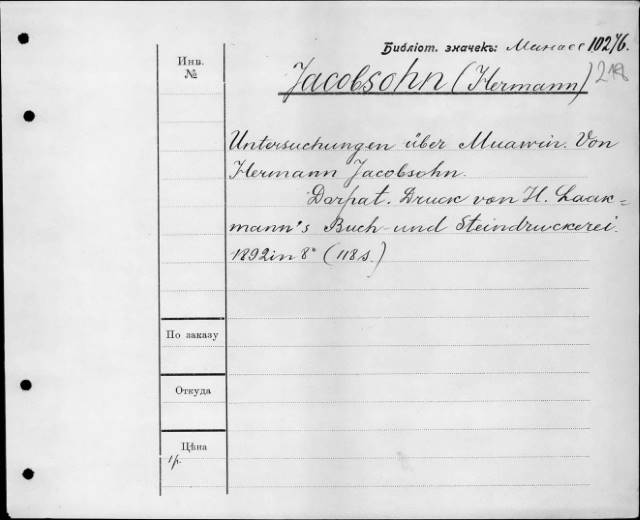 Библіот. значекъ: Минасс 102/6.
Инв.
№
Jacobsohn (Hermann)
218
Untersuchungen über Muawin. Von
Hermann Jacobsohn.
Dorpat. Druck von H. Laak=
mann's Buch- und Steindruckerei.
1892 in 8° (118 s.)
По заказу
Откуда
Цѣна
1р.